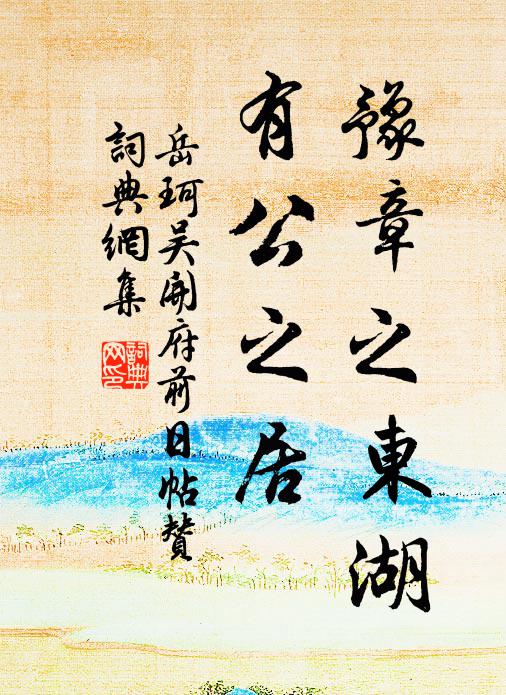 豫章之東湖
有公之居
岳珂吴開府前日帖贊
詞典網集
詞典
網印